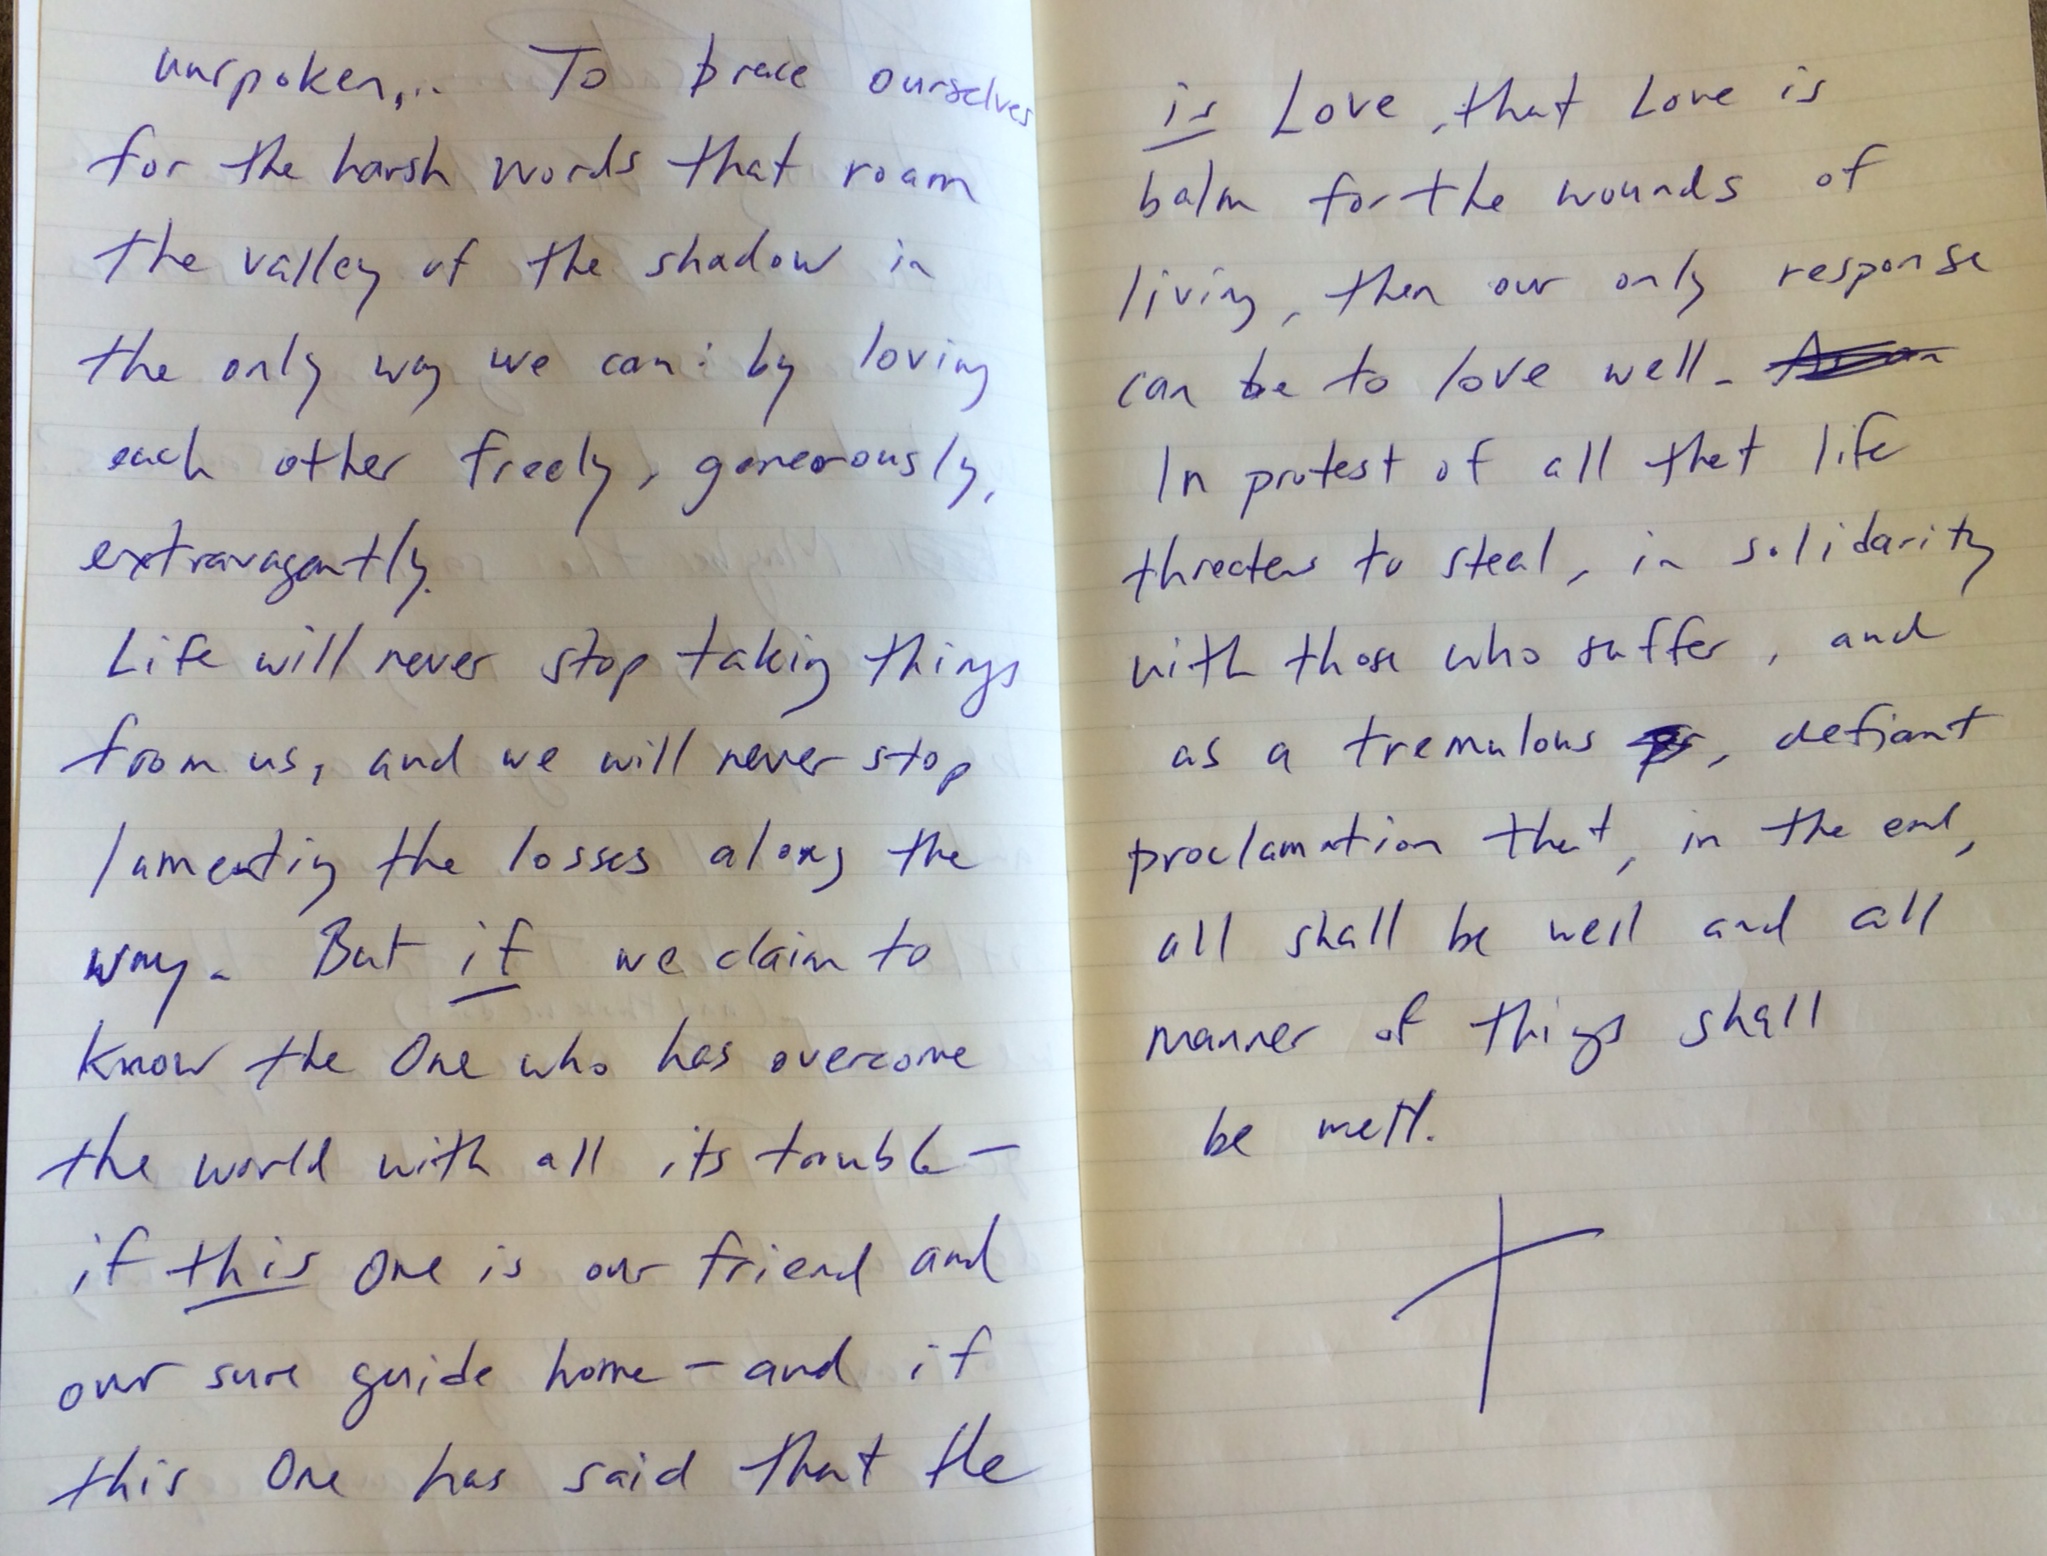 unspoken... To brace ourselves
for the harsh words that roam
the valley of the shadow in
the only way we can: by loving
each other freely, generously,
extravagantly.
Life will never stop taking things
from us, and we will never stop
lamenting the losses along the
way. But if we claim to
know the One who has overcome
the world with all its trouble—
if this One is our friend and
our sure guide home — and if
this One has said that the
is Love, that Love is
balm for the wounds of
living, then our only response
can be to love well.
In protest of all that life
threatens to steal, in solidarity
with those who suffer, and
as a tremulous, defiant
proclamation that, in the end,
all shall be well and all
manner of things shall
be well.